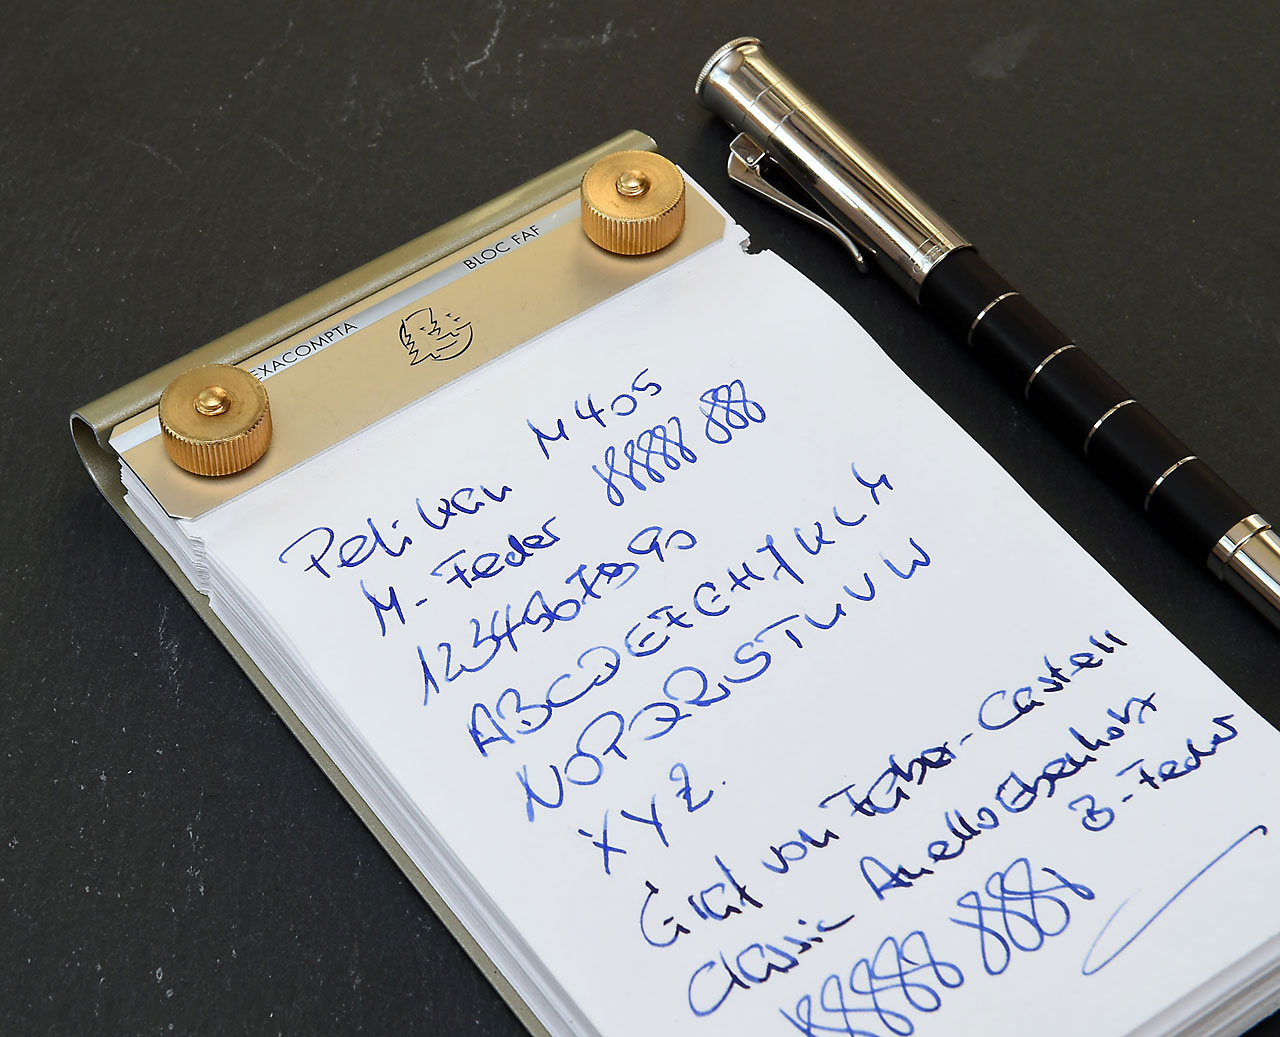 EXACOMPTA BLOC FAF
Pelikan M405
M-Feder 88888 888
1234567890
ABCDEFGHIJKLM
NOPQRSTUVW
XYZ.
Graf von Faber-Castell
Classic Anello Ebenholz
B-Feder
88888 8888